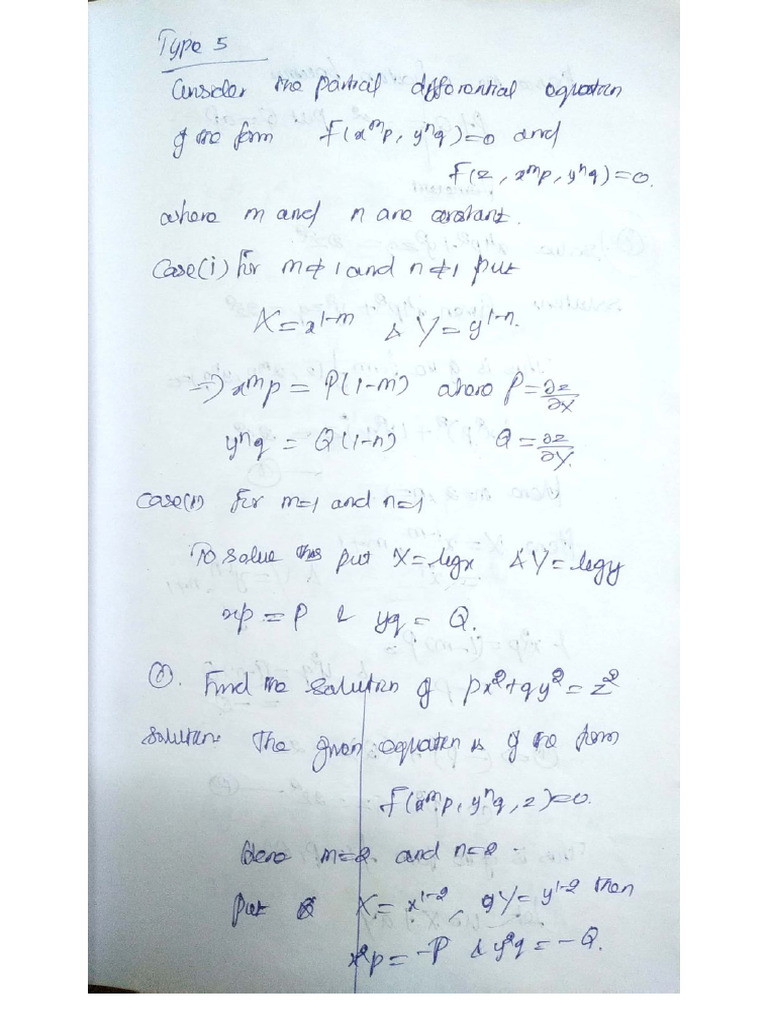 Type 5
Consider the partial differential equation
of the form F(x^m p, y^n q)=0 and
F(z, x^m p, y^n q)=0.
where m and n are constant.
Case(i) For m≠1 and n≠1 put
X=x^{1-m} & Y=y^{1-n}.
⇒ x^m p = P(1-m) where P=∂z/∂X
y^n q = Q(1-n) Q=∂z/∂Y.
Case(ii) For m=1 and n=1
To solve this put X=logx & Y=logy
xp=P & yq=Q.
Find the solution of px²+qy²=z²
Solution: The given equation is of the form
F(x^m p, y^n q, z)=0.
Here m=2 and n=2.
Put X=x^{1-2}, Y=y^{1-2} then
x²p=-P & y²q=-Q.